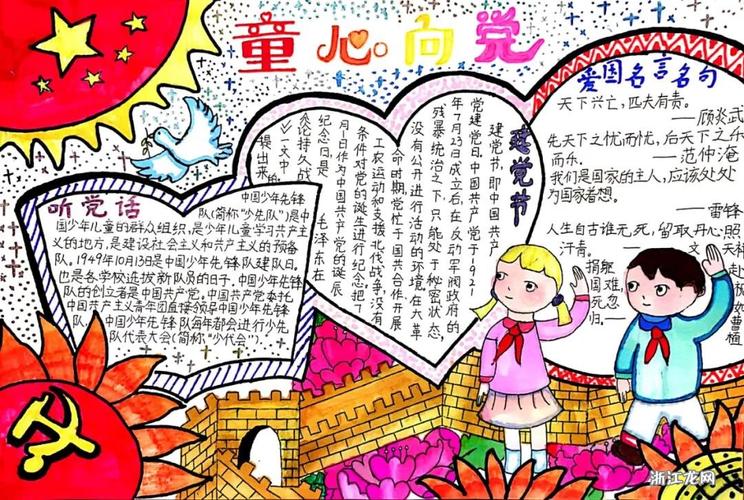 童心向党
听党话
中国少年先锋
队(简称“少先队”)是中
国少年儿童的群众组织,是少年儿童学习共产主
义的地方,是建设社会主义和共产主义的预备
队。1949年10月13日是中国少年先锋队建队日,
也是各学校选拔新队员的日子.中国少年先锋
队的创立者是中国共产党.中国共产党委托
中国共产主义青年团直接领导中国少年先锋
队 中国少年先锋队每年都会进行少先
队代表大会(简称“少代会”).
建党节
建党节,即中国共产
党建党日.中国共产党于1921
年7月23日成立后,在反动军阀政府的
残暴统治之下,只能处于秘密状态,
没有公开进行活动的环境.在大革
命时期,党忙于国共合作开展
工农运动和支援北伐战争,没有
条件对党的诞生进行纪念.把7
月1日作为中国共产党的诞辰
纪念日,是 毛泽东在
《论持久战
》一文中
提出来的
爱国名言名句
天下兴亡,匹夫有责。
——顾炎武
先天下之忧而忧,后天下之乐
而乐. ——范仲淹
我们是国家的主人,应该处处
为国家着想。
——雷锋
人生自古谁无死,留取丹心照
汗青. ——文天祥
捐躯
国难,
死忽
归.——
曹植
浙江龙网